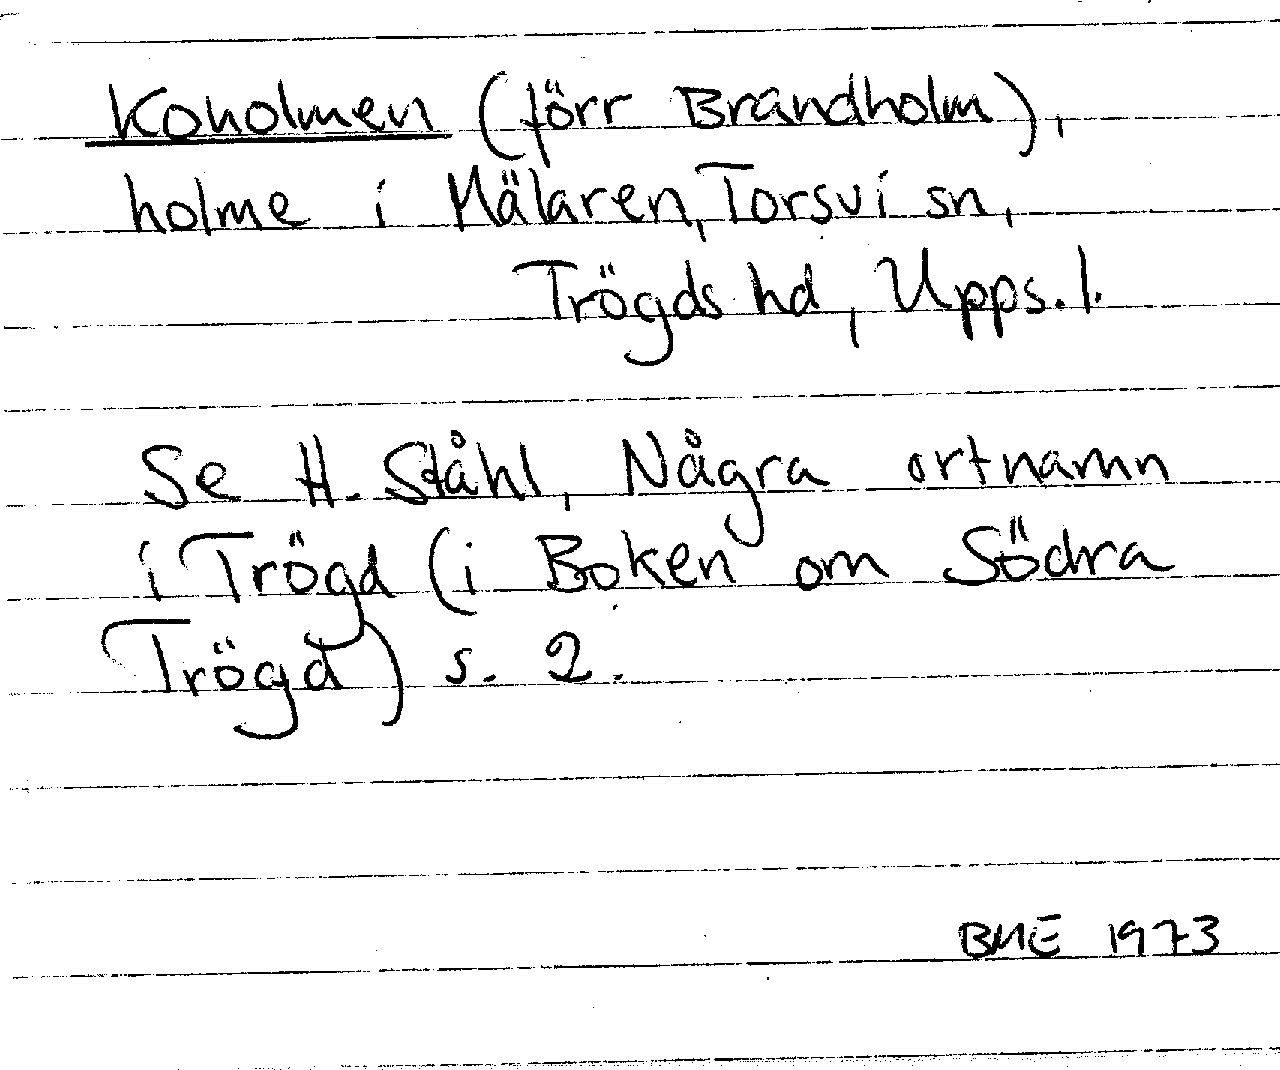 Koholmen (förr Brandholm),
holme i Mälaren, Torsvi sn,
Trögds hd, Upps. l.
Se H. Ståhl, Några ortnamn
i Trögd (i Boken om Södra
Trögd) s. 2.
BME 1973